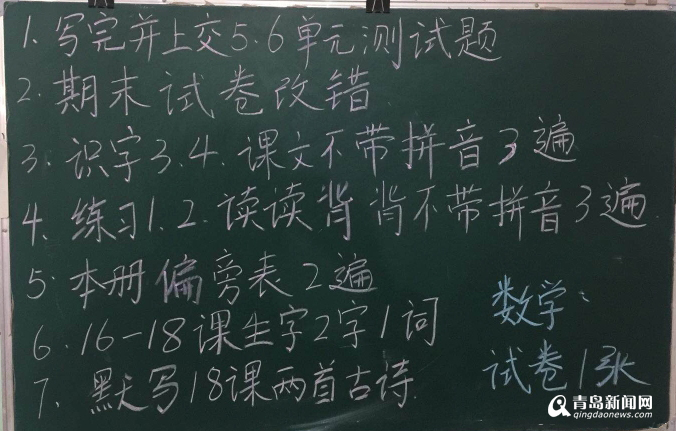 1. 写完并上交5.6单元测试题
2. 期末试卷改错
3. 识字3.4.课文不带拼音3遍
4. 练习1.2.读读背背不带拼音3遍
5. 本册偏旁表2遍
6. 16-18课生字2字1词
7. 默写18课两首古诗
数学:
试卷1张
青岛新闻网
qingdaonews.com